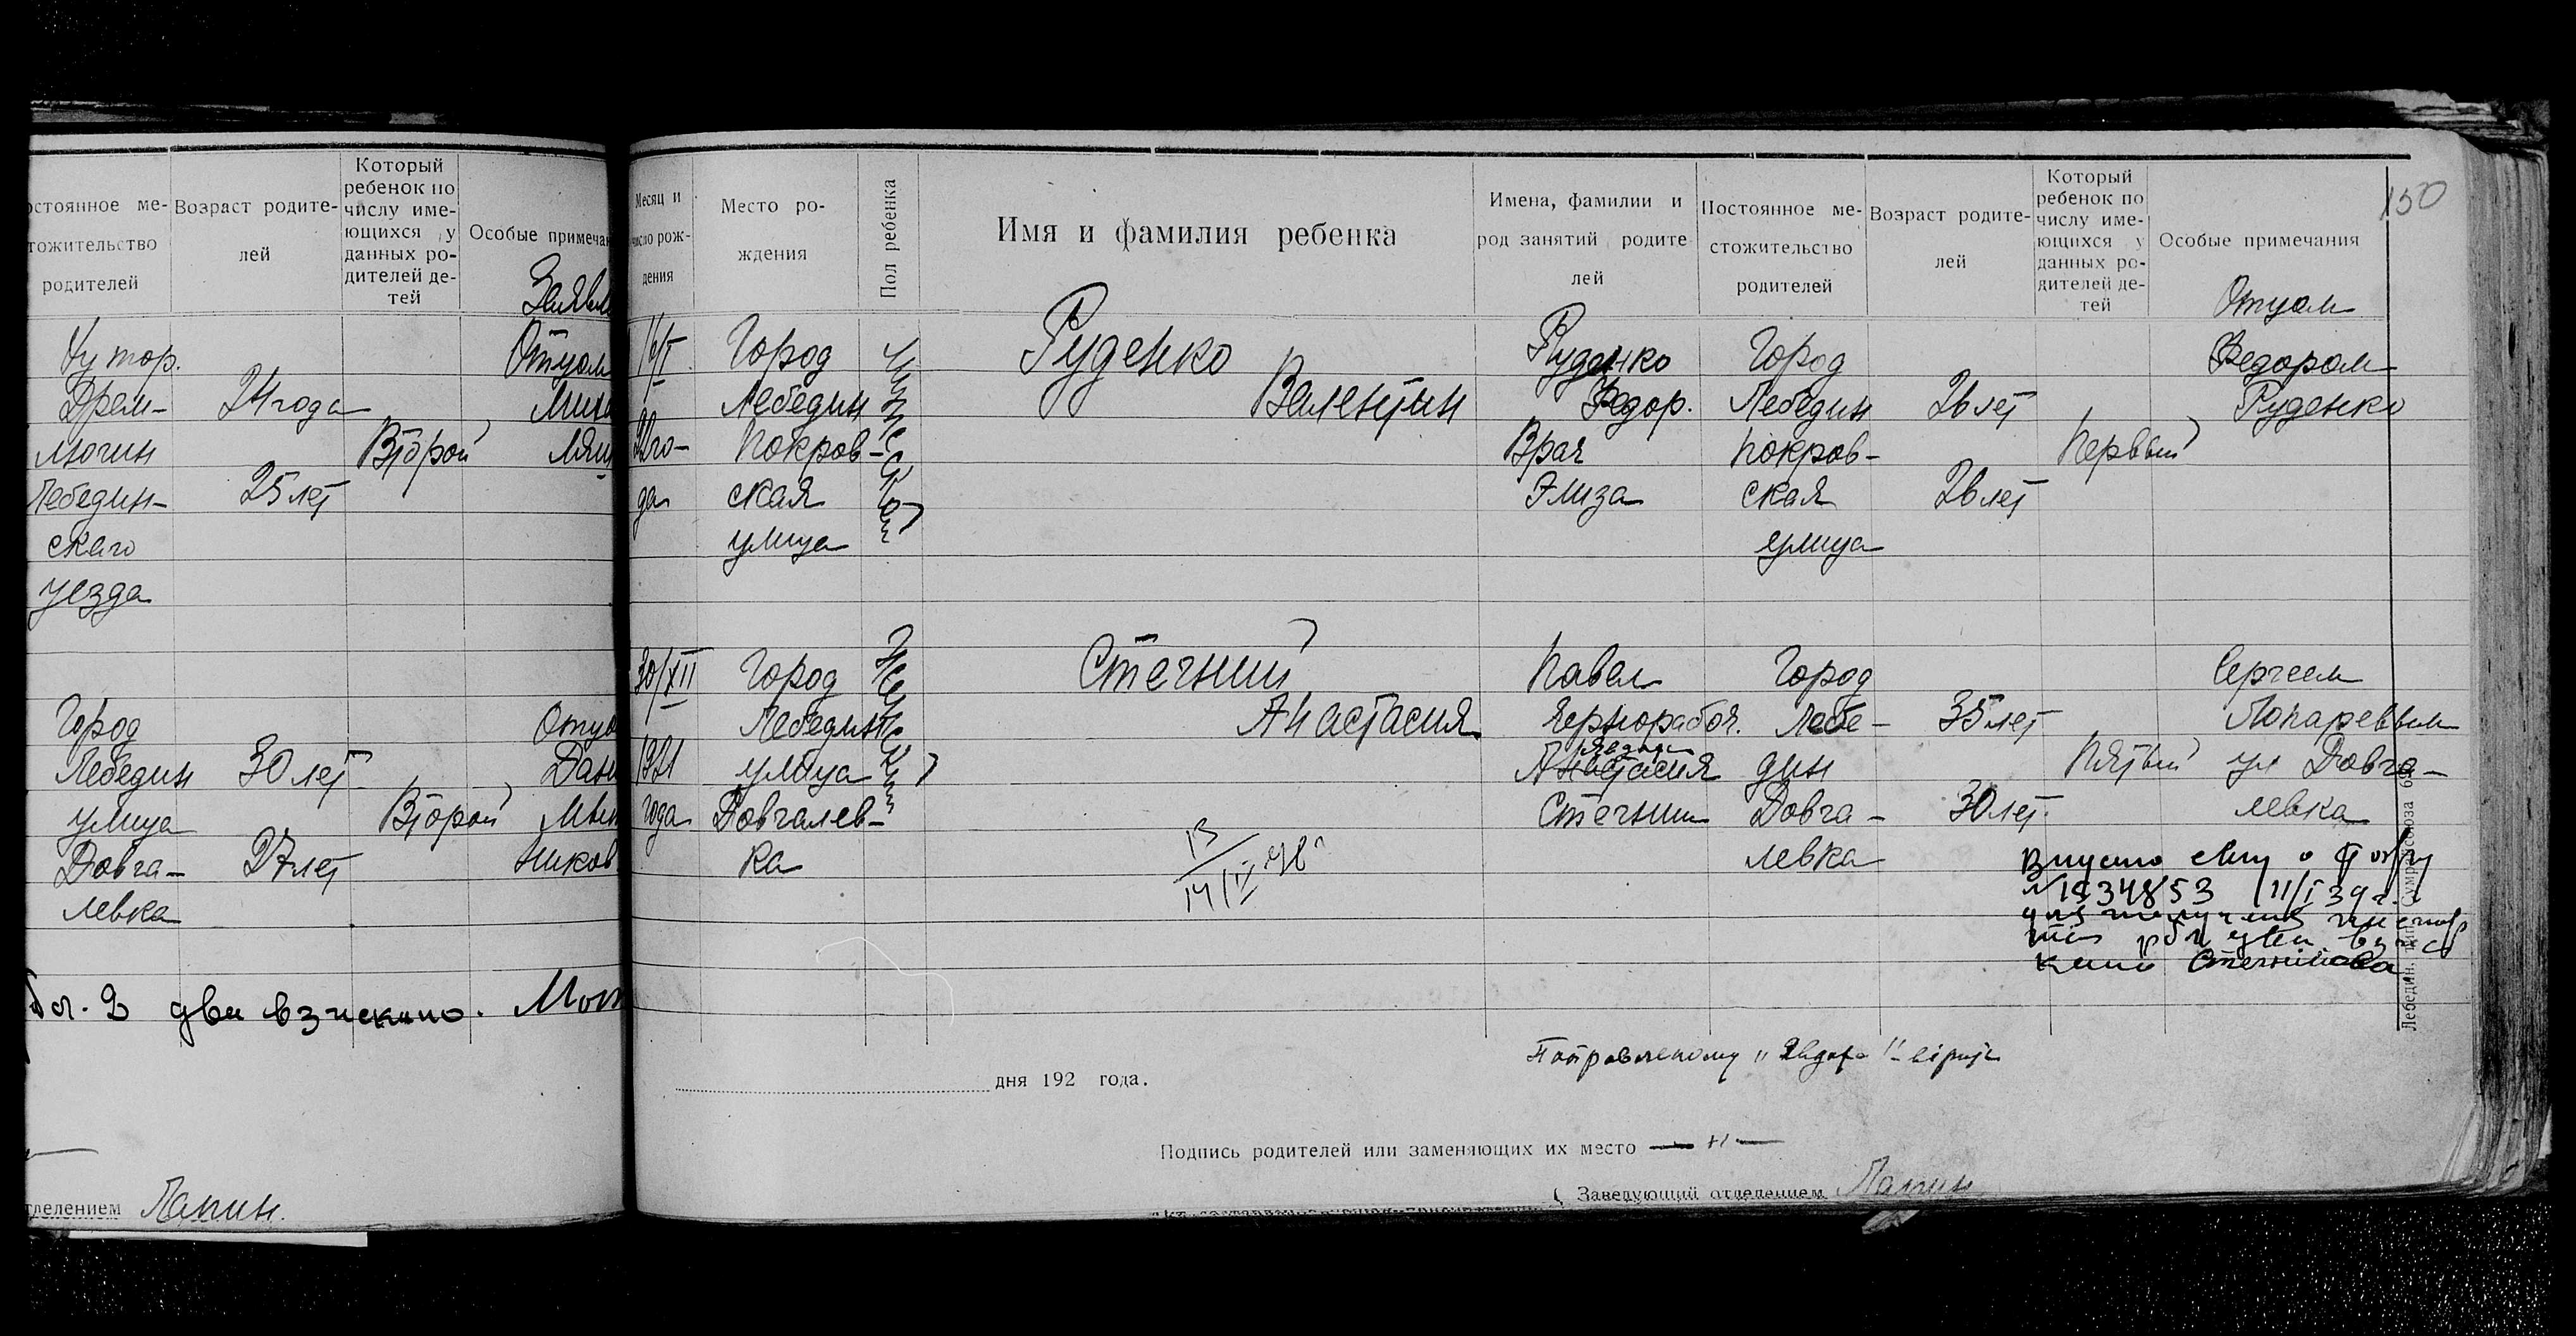 150
остоянное ме-
тожительство
родителей
Возраст родите-
лей
Который
ребенок по
числу име-
ющихся у
данных ро-
дителей де-
тей
Особые примечан
Заявл
Хутор.
Дрем-
лючин
Лебедин-
скаго
уезда
24 года
25 лет
Второй
Отцом
Миха
Город
Лебедин
улица
Довга-
левка
30 лет
27 лет
Второй
Отцо
Дани
ников
2 два взискано.
тделением Лапин.
Месяц и
число рож-
дения
Место ро-
ждения
Пол ребенка
Имя и фамилия ребенка
Имена, фамилии и
род занятий родите
лей
Постоянное ме-
стожительство
родителей
Возраст родите-
лей
Который
ребенок по
числу име-
ющихся у
данных ро-
дителей де-
тей
Особые примечания
16/I
22 го-
да
Город
Лебедин
Покров-
ская
улица
Мужеской
Руденко
Валентин
Руденко
Федор.
Врач
Элиза
Город
Лебедин
Покров-
ская
улица
26 лет
26 лет
Первый
Отцом
Федором
Руденко
30/XII
1921
года
Город
Лебедин
улица
Довгалев-
ка
Женский
Стечний
Анастасия
Павел
Чернорабоч.
Анастасия
Стечний
Город
Лебе-
дин
Довга-
левка
35 лет
30 лет.
Пятый
Сергеем
Лопаревым
ул Довга-
левка
13
14/II
№ 1934853 11/I 39 г.
Лебедин.
дня 192 года.
Подпись родителей или заменяющих их место
Заведующий отделением Лапин